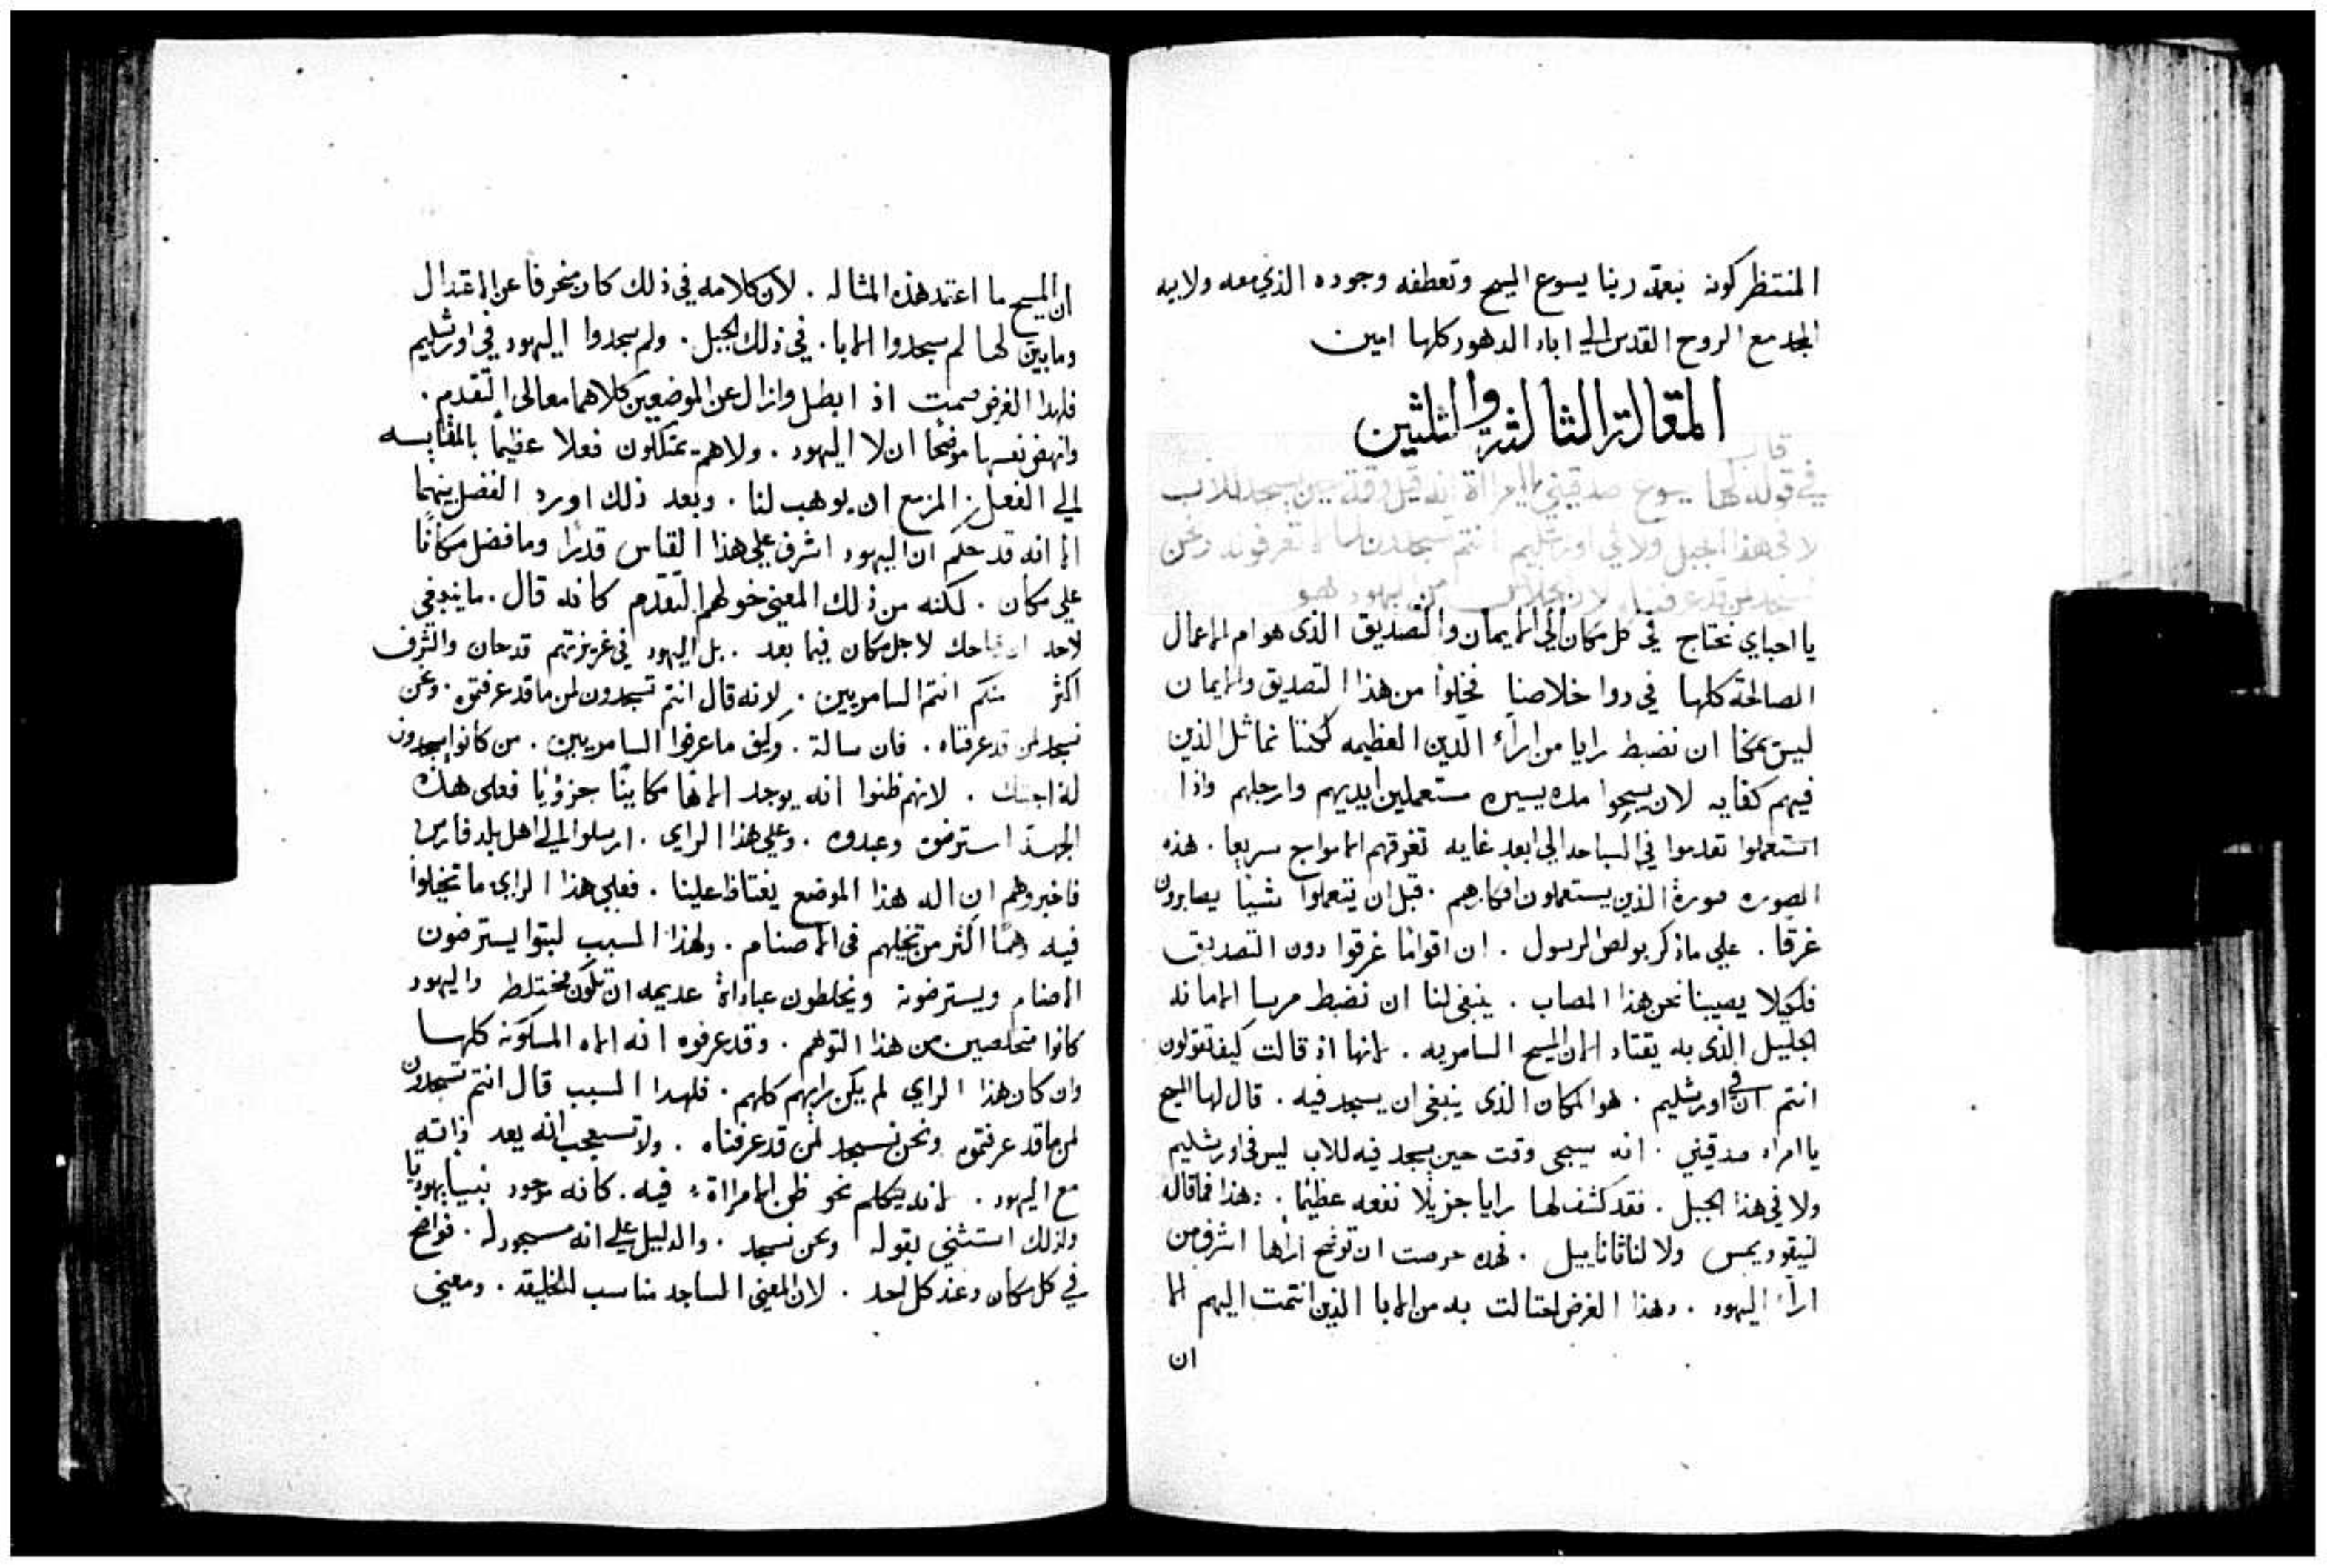 المنتظر كونه بنعمة ربنا يسوع المسيح وتعطفه وجوده الذي معه ولابيه
المجد مع الروح القدس الي اباد الدهور كلها امين
المقالة الثالثة والثلثين
قال
في قوله لها يسوع صدقيني يا امراة انه وقت حين يسجد للاب
لا في هذا الجبل ولا في اورشليم انتم تسجدون لما لا تعرفونه ونحن
نسجد لمن قد عرفناه لان الخلاص من اليهود هو
يا احباي نحتاج في كل مكان الي الايمان والتصديق الذي هو ام الاعمال
الصالحة كلها في دوا خلاصنا فخلوا من هذا التصديق والايمان
ليس يمكنا ان نضبط رايا من اراء الدين العظيمه لكننا نماثل الذين
فيهم كفايه لان يسبحوا مده يسيره مستعملين ايديهم وارجلهم واذا
استعملوا تقدموا في السباحه الي ابعد غايه تغرقهم الامواج سريعا . هذه
الصوره صورة الذين يستعملون افكارهم . قبل ان يتعملوا شيا يصابرون
غرقا . علي ما ذكر بولص الرسول . ان اقواما غرقوا دون التصديق
فلكيلا يصيبنا نحن هذا المصاب . ينبغي لنا ان نضبط مرسا الامانه
الجليل الذي به يقتاد الان المسيح السامريه . لانها اذ قالت كيف تقولون
انتم ان في اورشليم . هو المكان الذي ينبغي ان يسجد فيه . قال لها المسيح
يا امراه صدقيني . انه سيجي وقت حين يسجد فيه للاب ليس في اورشليم
ولا في هذا الجبل . فقد كشف لها رايا جزيلا نفعه عظيما . وهذا فما قاله
لنيقوديمس ولا لناثاناييل . فهذه حرصت ان توضح اراها اشرف من
اراء اليهود . وهذا الغرض احتالت به من الابا الذين انتمت اليهم الا
ان
ان المسيح ما اعتمد هذه المثاله . لان كلامه في ذلك كان منحرفا عن الاعتدال
وما بين لها لم سجدوا الابا . في ذلك الجبل . ولم سجدوا اليهود في اورشليم
فلهذا الغرض صمت اذ ابطل وازال عن الموضعين كلاهما معالي التقدم .
وانهض نفسها موضحا ان لا اليهود . ولا هم يمتلكون فعلا عظيما بالمقايسه
الي الفعل المزمع ان يوهب لنا . وبعد ذلك اورد الفصل بينهما
الا انه قد حكم ان اليهود اشرف علي هذا القياس قدرا وما فضل مكانا
علي مكان . لكنه من ذلك المعني خولهم التقدم كانه قال . ما ينبغي
لاحد ان يماحك لاجل مكان فيما بعد . بل اليهود في غريزتهم قد حان والشرف
اكثر منكم انتم السامريين . لانه قال انتم تسجدون لمن ما قد عرفتموه . ونحن
نسجد لمن قد عرفناه . فان سالة . وكيف ما عرفوا السامريين . من كانوا يسجدون
له اجبتك . لانهم ظنوا انه يوجد الاها مكاينا جزؤيا فعلي هذه
الجهة استرضوه وعبدوه . وعلي هذا الراي . ارسلوا الي اهل بلد فارس
فاخبروهم ان اله هذا الموضع يغتاظ علينا . فعلي هذا الراي ما تخيلوا
فيه وهما اكثر من تخيلهم في الاصنام . ولهذا السبب لبثوا يسترضون
الاصنام ويسترضونه ويخلطون عباداة عديمه ان تكون مختلط واليهود
كانوا متخلصين من هذا التوهم . وقد عرفوه انه الاه المسكونه كلها
وان كان هذا الراي لم يكن رايهم كلهم . فلهذا السبب قال انتم تسجدون
لمن ما قد عرفتموه ونحن نسجد لمن قد عرفناه . ولا تستعجب انه يعد ذاته
مع اليهود . لانه يتكلم نحو ظن الامراة فيه . كانه موجود نبيا يهوديا
ولذلك استثني بقوله ونحن نسجد . والدليل علي انه مسجود له . فواضح
في كل مكان وعند كل احد . لان المعني الساجد مناسب للخليقه . ومعني